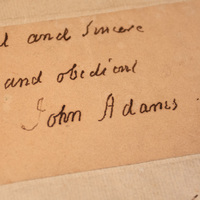 and sincere
and obedient
John Adams